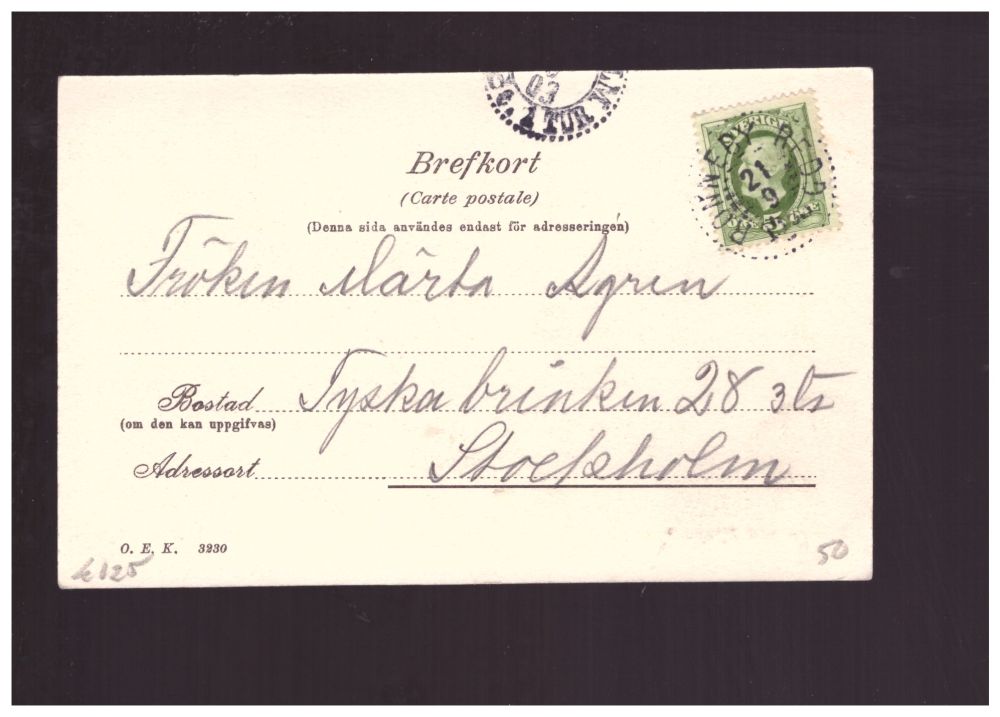 03
1 TUR
SVERIGE
RONNEBY
21
9
Brefkort
(Carte postale)
(Denna sida användes endast för adresseringen)
Fröken Märta Agren
Bostad Tyska brinken 28 3 tr
(om den kan uppgifvas)
Adressort Stockholm
O. E. K. 3230
50